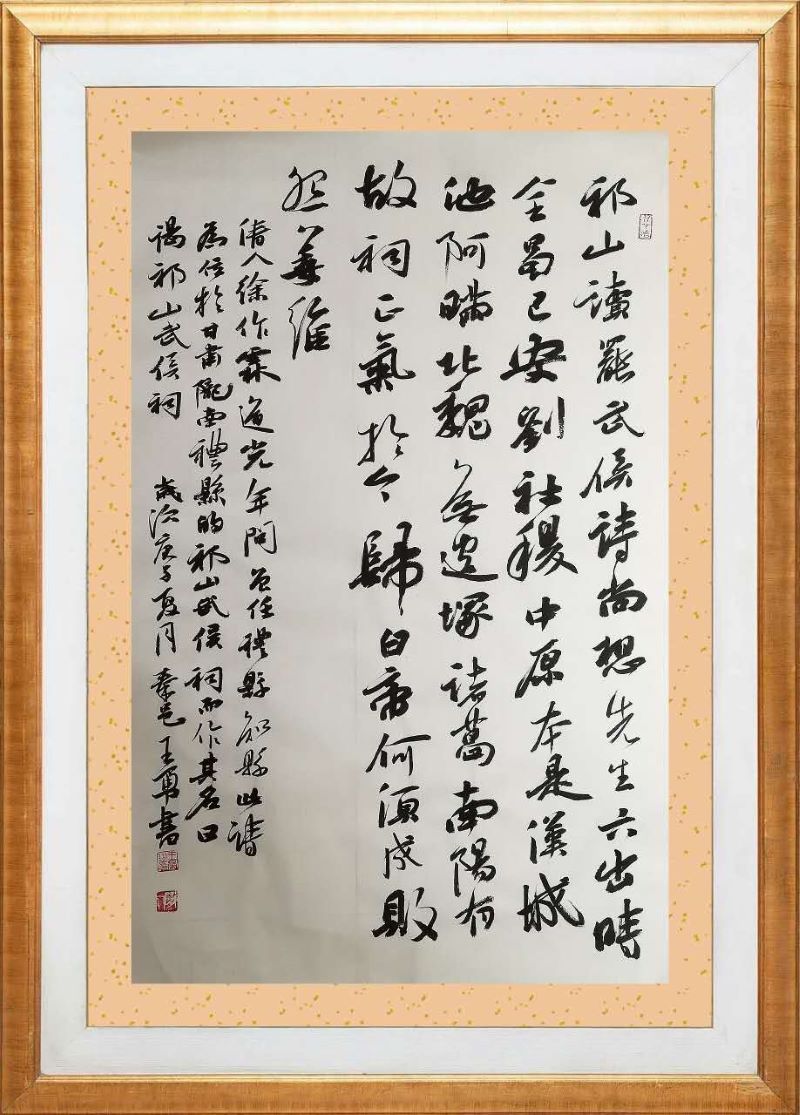 祁山讀罷武侯詩尚想先生六出時
全蜀已安劉社稷中原本是漢城
池阿瞞北魏無遺塚諸葛南陽有
故祠正氣於今歸白帝何須成敗
怨姜維
清人徐作霖道光年間曾任禮縣知縣此詩
為位於甘肅隴西禮縣的祁山武侯祠而作其名曰
謁祁山武侯祠 歲次庚子夏月秦邑王勇書